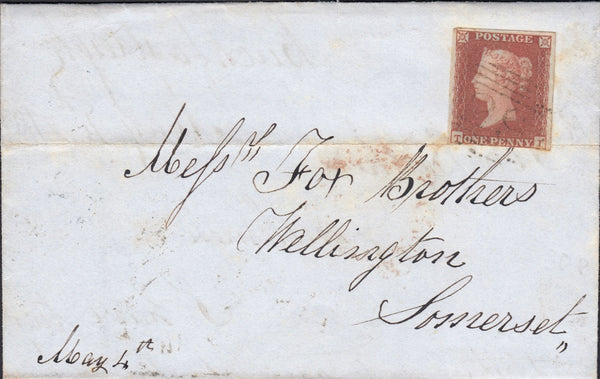 POSTAGE
ONE PENNY
Messrs Fox Brothers
Wellington
Somerset
May 4th